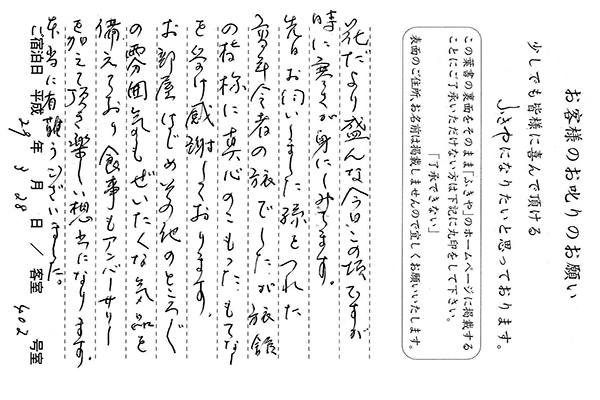 お客様のお叱りのお願い
少しでも皆様に喜んで頂ける
ふきやになりたいと思っております。
この葉書の裏面をそのまま「ふきや」のホームページに掲載する
ことにご了承いただけない方は下記に丸印をして下さい。
「了承できない」
表面のご住所、お名前は掲載しませんので宜しくお願いいたします。
花だより盛んな今日この頃ですが
時に寒さが身にしみてます。
先日お伺いしました 孫をつれた
高年令者の旅でしたが 旅館
の皆様に真心のこもったもてなし
を受け感謝しております。
お部屋はじめその他のところどころ
の雰囲気もぜいたくな気品を
備えており 食事もアンバーサリー
を加えて頂き楽しい想出になります。
本当に有難うございました。
ご宿泊日 平成 29 年 3 月 28 日 / 客室 402 号室